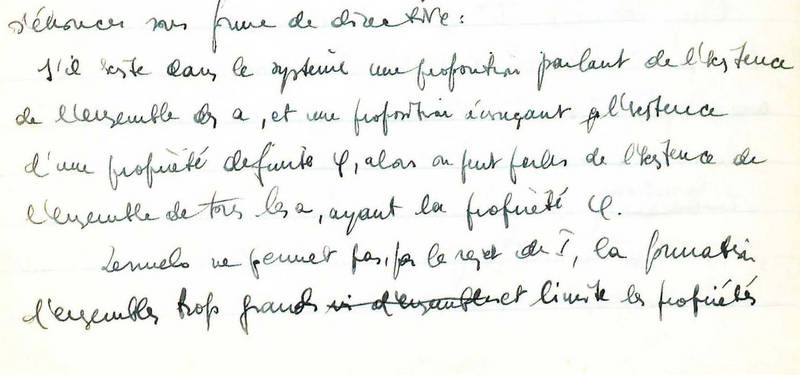 s'énoncer sous forme de directive :
S'il existe dans le système une proposition parlant de l'existence
de l'ensemble des a, et une proposition énonçant l'existence
d'une propriété définie φ, alors on peut parler de l'existence de
l'ensemble de tous les a, ayant la propriété φ.
Zermelo ne permet pas, par le rejet de I, la formation
d'ensembles trop grands ni d'ensembles et limite les propriétés